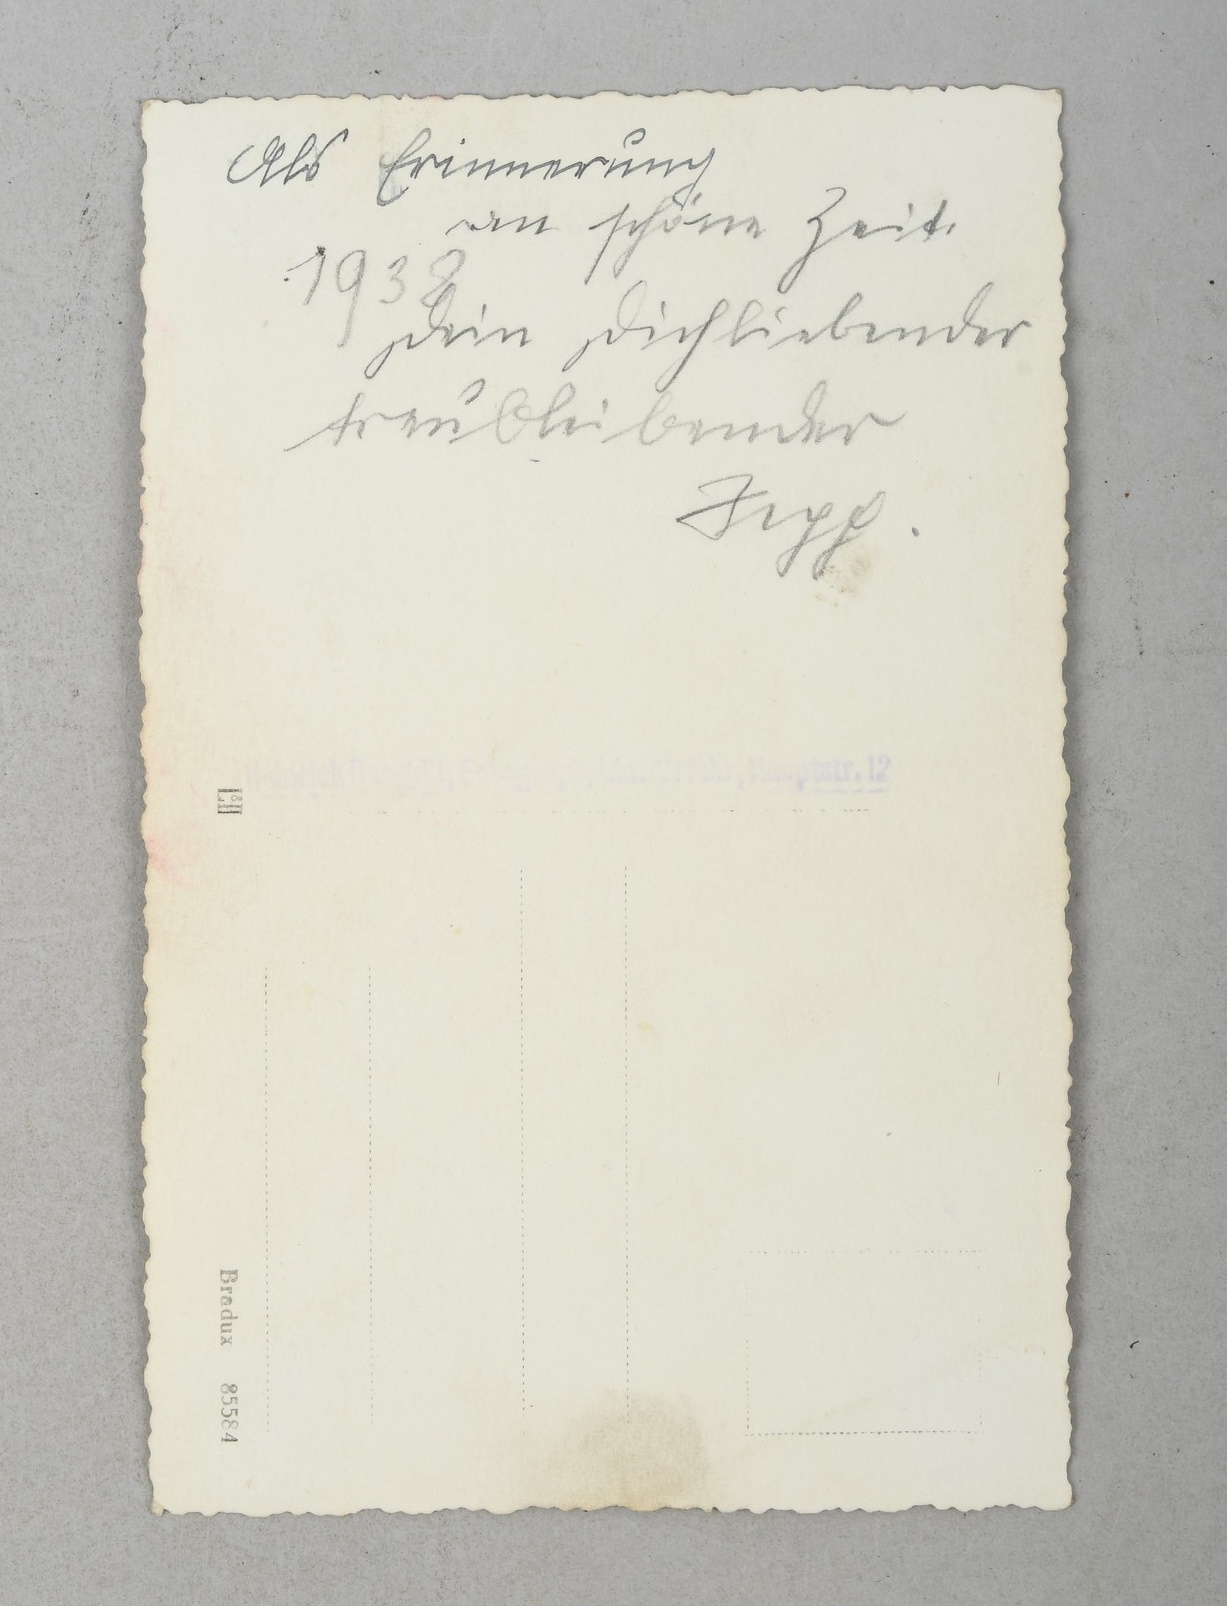 Als Erinnerung
an schöne Zeit.
1938
Dein Dichliebender
treubleibender
Sepp.
Hauptstr. 12
L&H
Bradux 85584